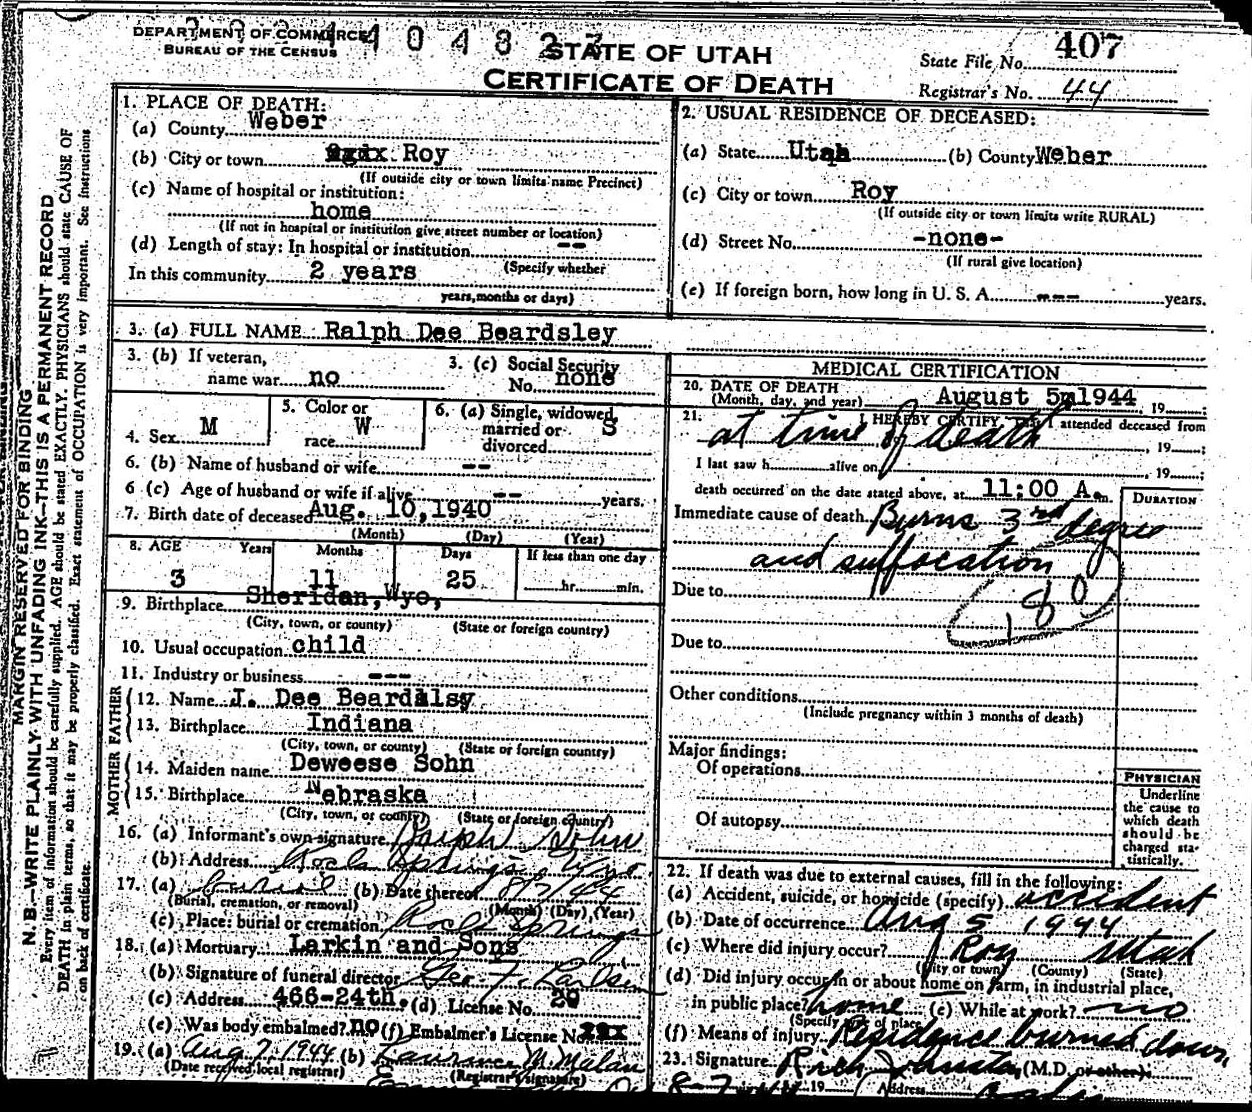 DEPARTMENT OF COMMERCE
BUREAU OF THE CENSUS
STATE OF UTAH
CERTIFICATE OF DEATH
State File No. 407
Registrar's No. 44
MARGIN RESERVED FOR BINDING
N. B.—WRITE PLAINLY WITH UNFADING INK—THIS IS A PERMANENT RECORD
Every item of information should be carefully supplied. AGE should be stated EXACTLY. PHYSICIANS should state CAUSE OF
DEATH in plain terms, so that it may be properly classified. Exact statement of OCCUPATION is very important. See instructions
on back of certificate.
1. PLACE OF DEATH:
(a) County Weber
(b) City or town Roy
(If outside city or town limits name Precinct)
(c) Name of hospital or institution:
home
(If not in hospital or institution give street number or location)
(d) Length of stay: In hospital or institution --
(Specify whether
In this community 2 years
years, months or days)
2. USUAL RESIDENCE OF DECEASED:
(a) State Utah (b) County Weber
(c) City or town Roy
(If outside city or town limits write RURAL)
(d) Street No. -none-
(If rural give location)
(e) If foreign born, how long in U. S. A. --- years.
3. (a) FULL NAME Ralph Dee Beardsley
3. (b) If veteran,
name war no
3. (c) Social Security
No. none
4. Sex M
5. Color or
race W
6. (a) Single, widowed,
married or
divorced S
6. (b) Name of husband or wife --
6 (c) Age of husband or wife if alive -- years.
7. Birth date of deceased Aug. 10, 1940
(Month) (Day) (Year)
8. AGE Years Months Days If less than one day
3 11 25 hr. min.
9. Birthplace Sheridan, Wyo,
(City, town, or county) (State or foreign country)
10. Usual occupation child
11. Industry or business ---
FATHER
12. Name J. Dee Beardslsy
13. Birthplace Indiana
(City, town, or county) (State or foreign country)
MOTHER
14. Maiden name Deweese Sohn
15. Birthplace Nebraska
(City, town, or county) (State or foreign country)
16. (a) Informant's own signature Ralph Sohn
(b) Address Rock Springs, Wyo.
17. (a) burial (b) Date thereof 8/7/44
(Burial, cremation, or removal) (Month) (Day) (Year)
(c) Place: burial or cremation Rock Springs
18. (a) Mortuary Larkin and Sons
(b) Signature of funeral director Geo. F.
(c) Address 466-24th. (d) License No. 29
(e) Was body embalmed? no (f) Embalmer's License No.
19. (a) Aug 7, 1944 (b) Laurence M. Malan
(Date received local registrar) (Registrar's signature)
MEDICAL CERTIFICATION
20. DATE OF DEATH
(Month, day, and year) August 5, 1944, 19
21. I HEREBY CERTIFY, That I attended deceased from
at time of death, 19
I last saw h alive on , 19
death occurred on the date stated above, at 11:00 A. m.
DURATION
Immediate cause of death Burns 3rd degree
and suffocation
180
Due to
Due to
Other conditions
(Include pregnancy within 3 months of death)
Major findings:
Of operations
Of autopsy
PHYSICIAN
Underline
the cause to
which death
should be
charged sta-
tistically.
22. If death was due to external causes, fill in the following:
(a) Accident, suicide, or homicide (specify) accident
(b) Date of occurrence Aug 5 1944
(c) Where did injury occur? Roy Utah
(City or town) (County) (State)
(d) Did injury occur in or about home on farm, in industrial place,
in public place? home (e) While at work? no
(Specify type of place)
(f) Means of injury Residence burned down
23. Signature Rich Johnston (M.D. or other)
19 Address